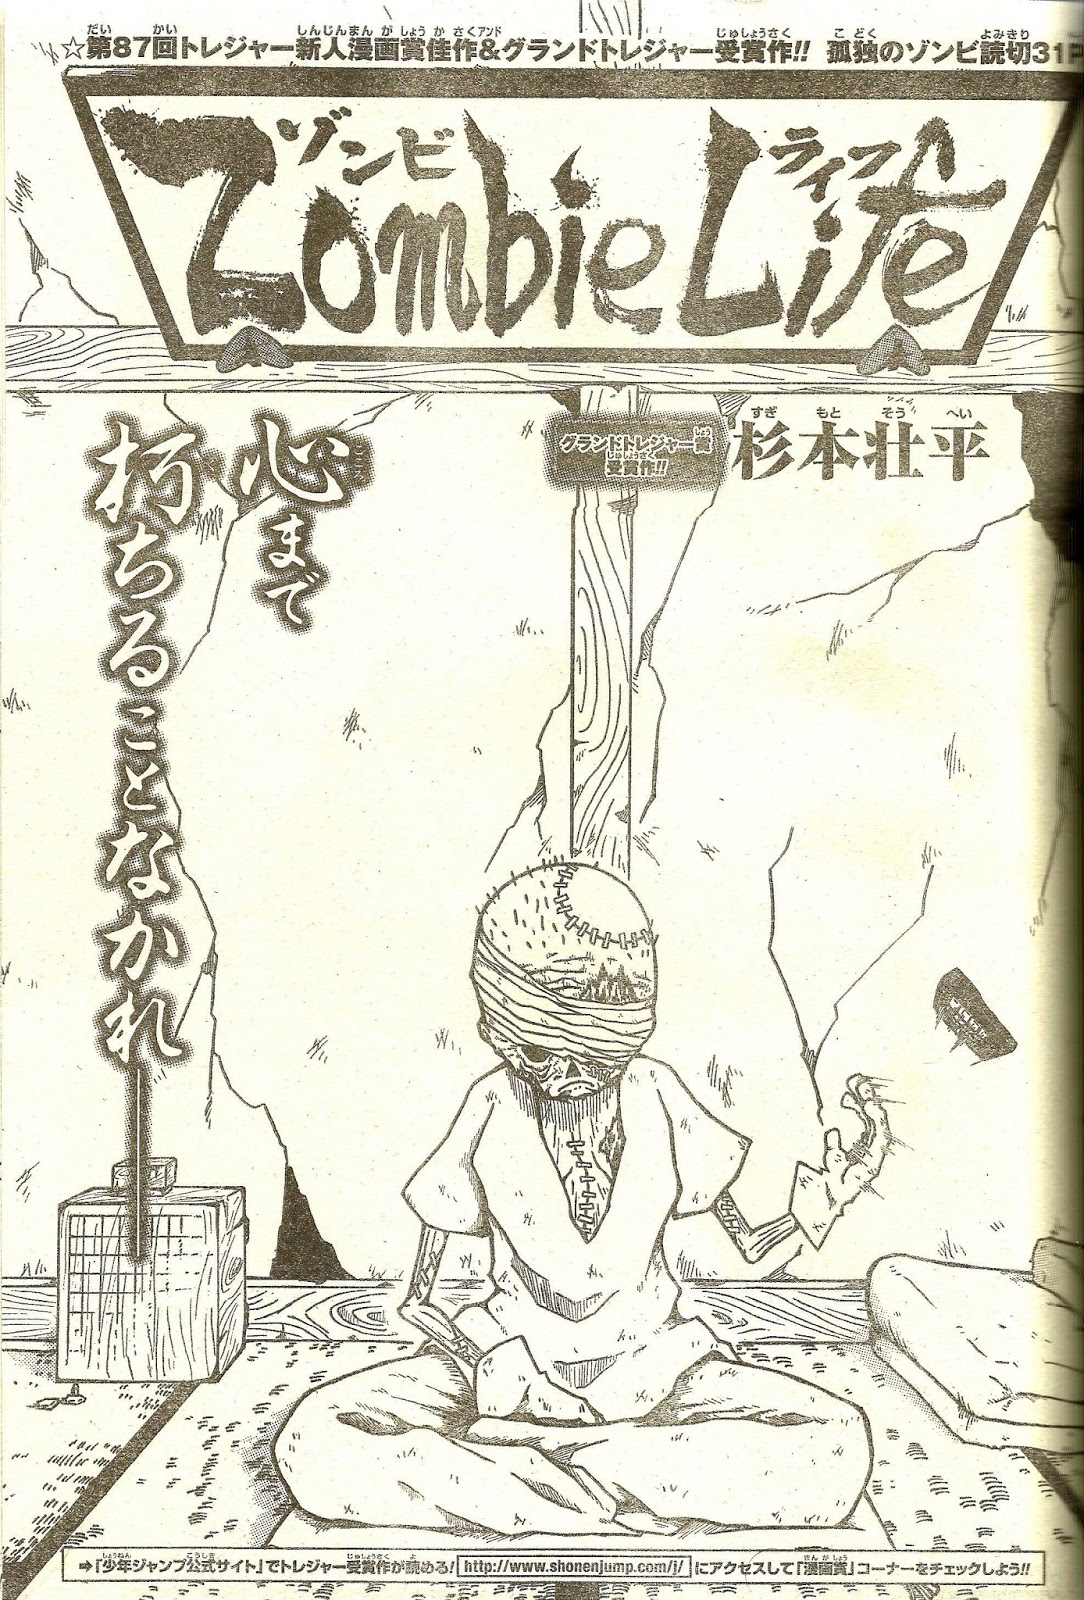 ☆第87回トレジャー新人漫画賞佳作&グランドトレジャー受賞作!! 孤独のゾンビ読切31P
Zombie Life
ゾンビ ライフ
グランドトレジャー賞
受賞作!!
杉本壮平
すぎ もと そう へい
心まで
朽ちることなかれ
➡「少年ジャンプ公式サイト」でトレジャー受賞作が読める! http://www.shonenjump.com/j/ にアクセスして「漫画賞」コーナーをチェックしよう!!